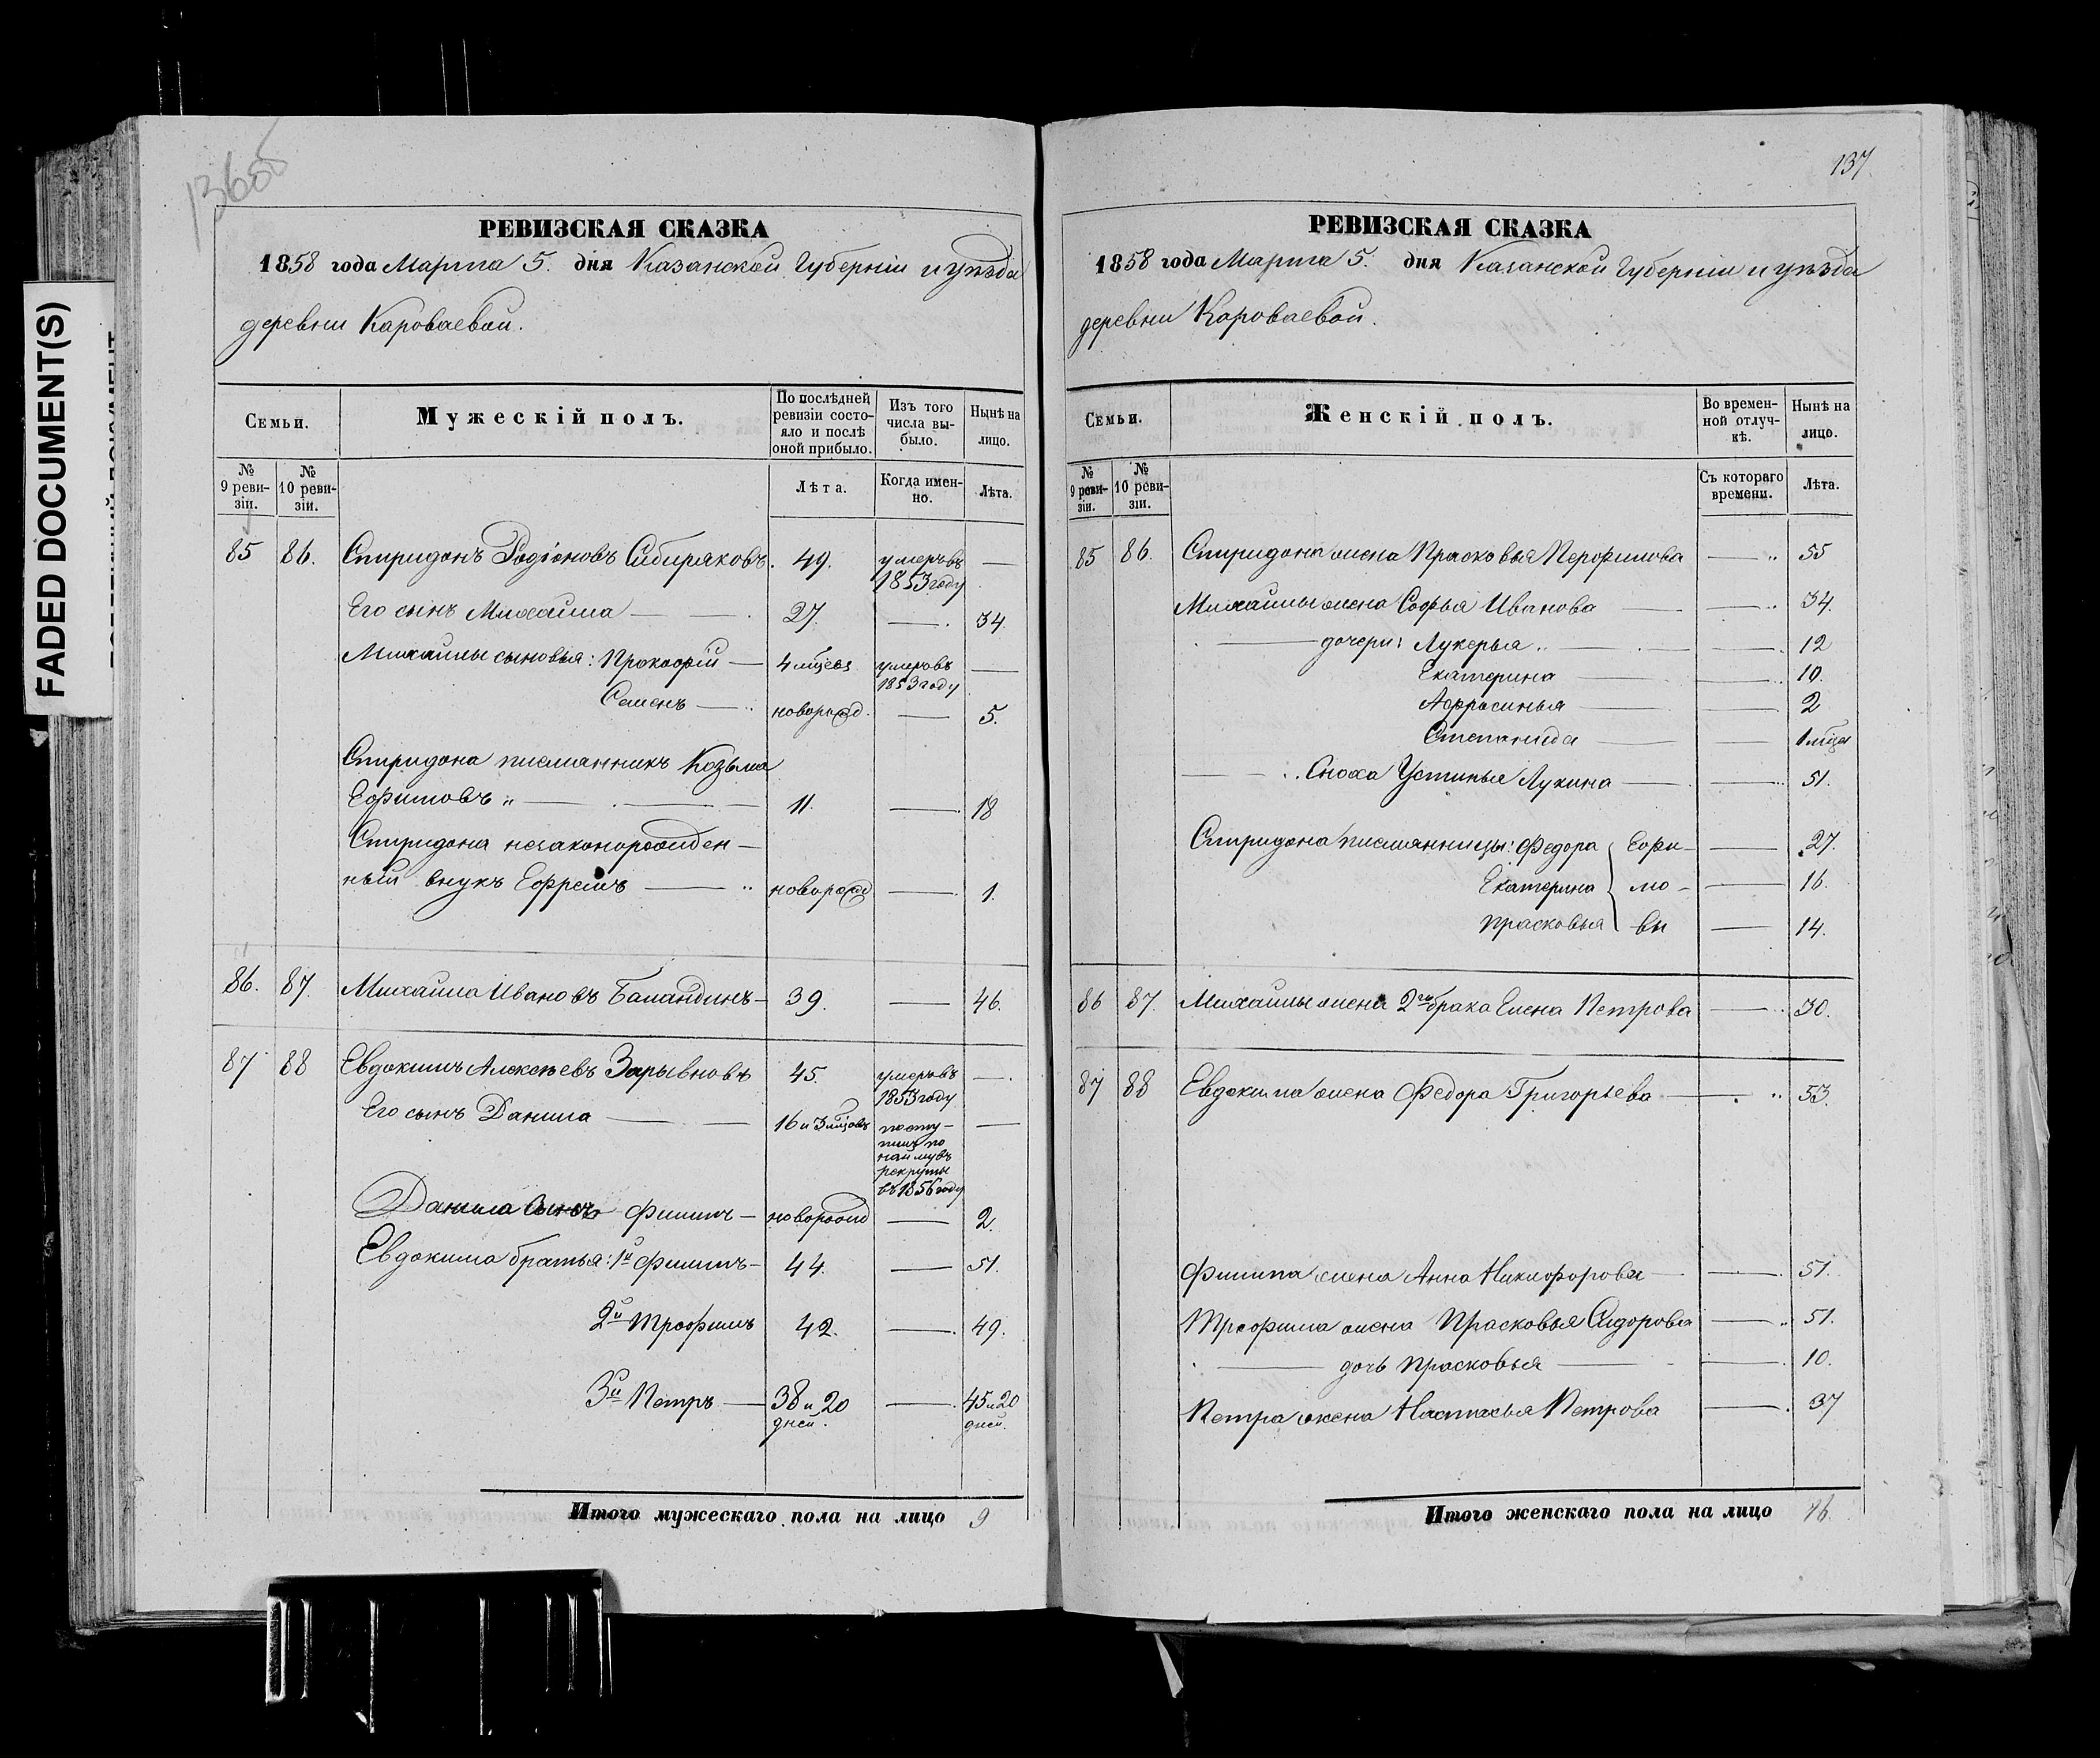 FADED DOCUMENT(S)
13605
РЕВИЗСКАЯ СКАЗКА
1858 года Марта 5. дня Казанской Губернiи и уѣзда
деревни Короваевой.
Семьи.
Мужескiй полъ.
По послѣдней ревизiи состо-яло и послѣ оной прибыло.
Изъ того числа вы-было.
Нынѣ на лицо.
№ 9 реви-зiи.
№ 10 реви-зiи.
Лѣта.
Когда имен-но.
Лѣта.
85 86. Спиридонъ Родiоновъ Сибиряковъ. 49. умеръ въ 1853 году —
Его сынъ Михайла — 27. — 34
Михайлы сыновья: Прокофiй — 4 мѣсяц умеръ въ 1853 году —
Семенъ — новорожд. — 5.
Спиридона племянникъ Козьма
Ефимовъ — 11. — 18
Спиридона незаконорожден-
ный внукъ Ефремъ — новорожд — 1.
86. 87. Михайла Ивановъ Баландинъ — 39. — 46.
87 88 Евдокимъ Алексѣевъ Зарывновъ 45. умеръ въ 1853 году —
Его сынъ Данила — 16 и 3 мѣсяцовъ посту-пилъ по найму въ рекруты въ 1856 году —
Данила сынъ Филипъ — новорожд — 2.
Евдокима братья: 1й Филипъ — 44. — 51.
2й Трофимъ 42. — 49.
3й Петръ — 38 и 20 дней. — 45 и 20 дней.
Итого мужескаго пола на лицо 9
137.
РЕВИЗСКАЯ СКАЗКА
1858 года Марта 5. дня Казанской Губернiи и уѣзда
деревни Короваевой.
Семьи.
Женскiй полъ.
Во времен-ной отлуч-кѣ.
Нынѣ на лицо.
№ 9 реви-зiи.
№ 10 реви-зiи.
Съ котораго времени.
Лѣта.
85 86. Спиридона жена Прасковья Перофилова — 55
Михайлы жена Софья Иванова — 34.
— дочери: Лукерья — 12
Екатерина — 10.
Афросинья — 2
Степанида — 1 мѣсяц
— Сноха Устинья Лукина — 51.
Спиридона племянницы: Федора } Ефи- — 27.
Екатерина } мо- — 16.
Прасковья } вы — 14.
86 87. Михайлы жена 2го брака Елена Петрова — 30.
87 88 Евдокима жена Федора Григорьева — 53.
Филипа жена Анна Никифорова — 51.
Трофима жена Прасковья Сидорова — 51.
— дочь Прасковья — 10.
Петра жена Настасья Петрова — 37
Итого женскаго пола на лицо 16.